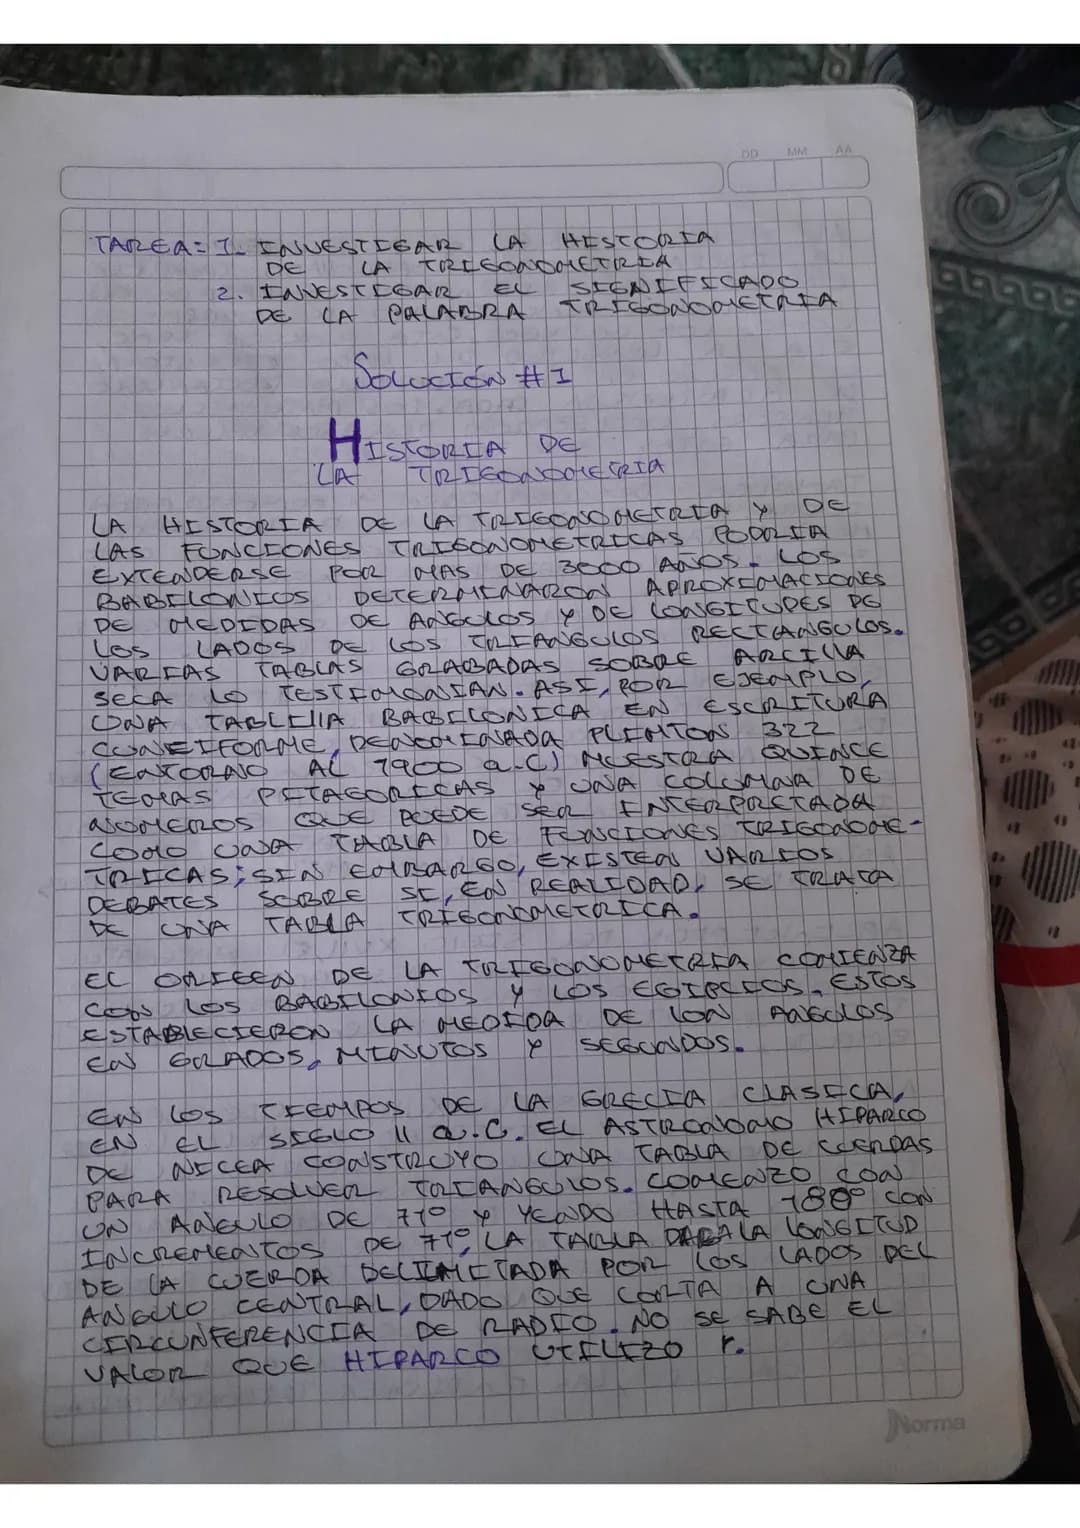 DD MM AA
TAREA= 1. INVESTIGAR LA HISTORIA
DE LA TRIGONOMETRIA
2. INVESTIGAR EL SIGNIFICADO
DE LA PALABRA TRIGONOMETRIA
SOLUCIÓN #1
HISTORIA DE
LA TRIGONOMETRIA
LA HISTORIA DE LA TRIGONOMETRIA Y DE
LAS FUNCIONES TRIGONOMETRICAS PODRIA
EXTENDERSE POR MAS DE 3000 AÑOS. LOS
BABILONIOS DETERMINARON APROXIMACIONES
DE MEDIDAS DE ANGULOS Y DE LONGITUDES DE
LOS LADOS DE LOS TRIANGULOS RECTANGULOS.
VARIAS TABLAS GRABADAS SOBRE ARCILLA
SECA LO TESTIMONIAN. ASI, POR EJEMPLO,
UNA TABLILLA BABILONICA EN ESCRITURA
CUNEIFORME, DENOMINADA PLIMTON 322
(ENTORNO AL 1900 a.C) MUESTRA QUINCE
TEMAS PITAGORICAS Y UNA COLUMNA DE
NUMEROS QUE PUEDE SER INTERPRETADA
COMO UNA TABLA DE FUNCIONES TRIGONOME-
TRICAS; SIN EMBARGO, EXISTEN VARIOS
DEBATES SOBRE SI, EN REALIDAD, SE TRATA
DE UNA TABLA TRIGONOMETRICA.
EL ORIGEN DE LA TRIGONOMETRIA COMIENZA
CON LOS BABILONIOS Y LOS EGIPCIOS. ESTOS
ESTABLECIERON LA MEDIDA DE LON ANGULOS
EN GRADOS, MINUTOS Y SEGUNDOS.
EN LOS TIEMPOS DE LA GRECIA CLASICA,
EN EL SIGLO II a.C. EL ASTRONOMO HIPARCO
DE NICEA CONSTRUYO UNA TABLA DE CUERDAS
PARA RESOLVER TRIANGULOS. COMENZO CON
UN ANGULO DE 71° Y YENDO HASTA 180° CON
INCREMENTOS DE 71°, LA TABLA DABA LA LONGITUD
DE LA CUERDA DELIMITADA POR LOS LADOS DEL
ANGULO CENTRAL, DADO QUE CORTA A UNA
CIRCUNFERENCIA DE RADIO. NO SE SABE EL
VALOR QUE HIPARCO UTILIZO r.
Norma